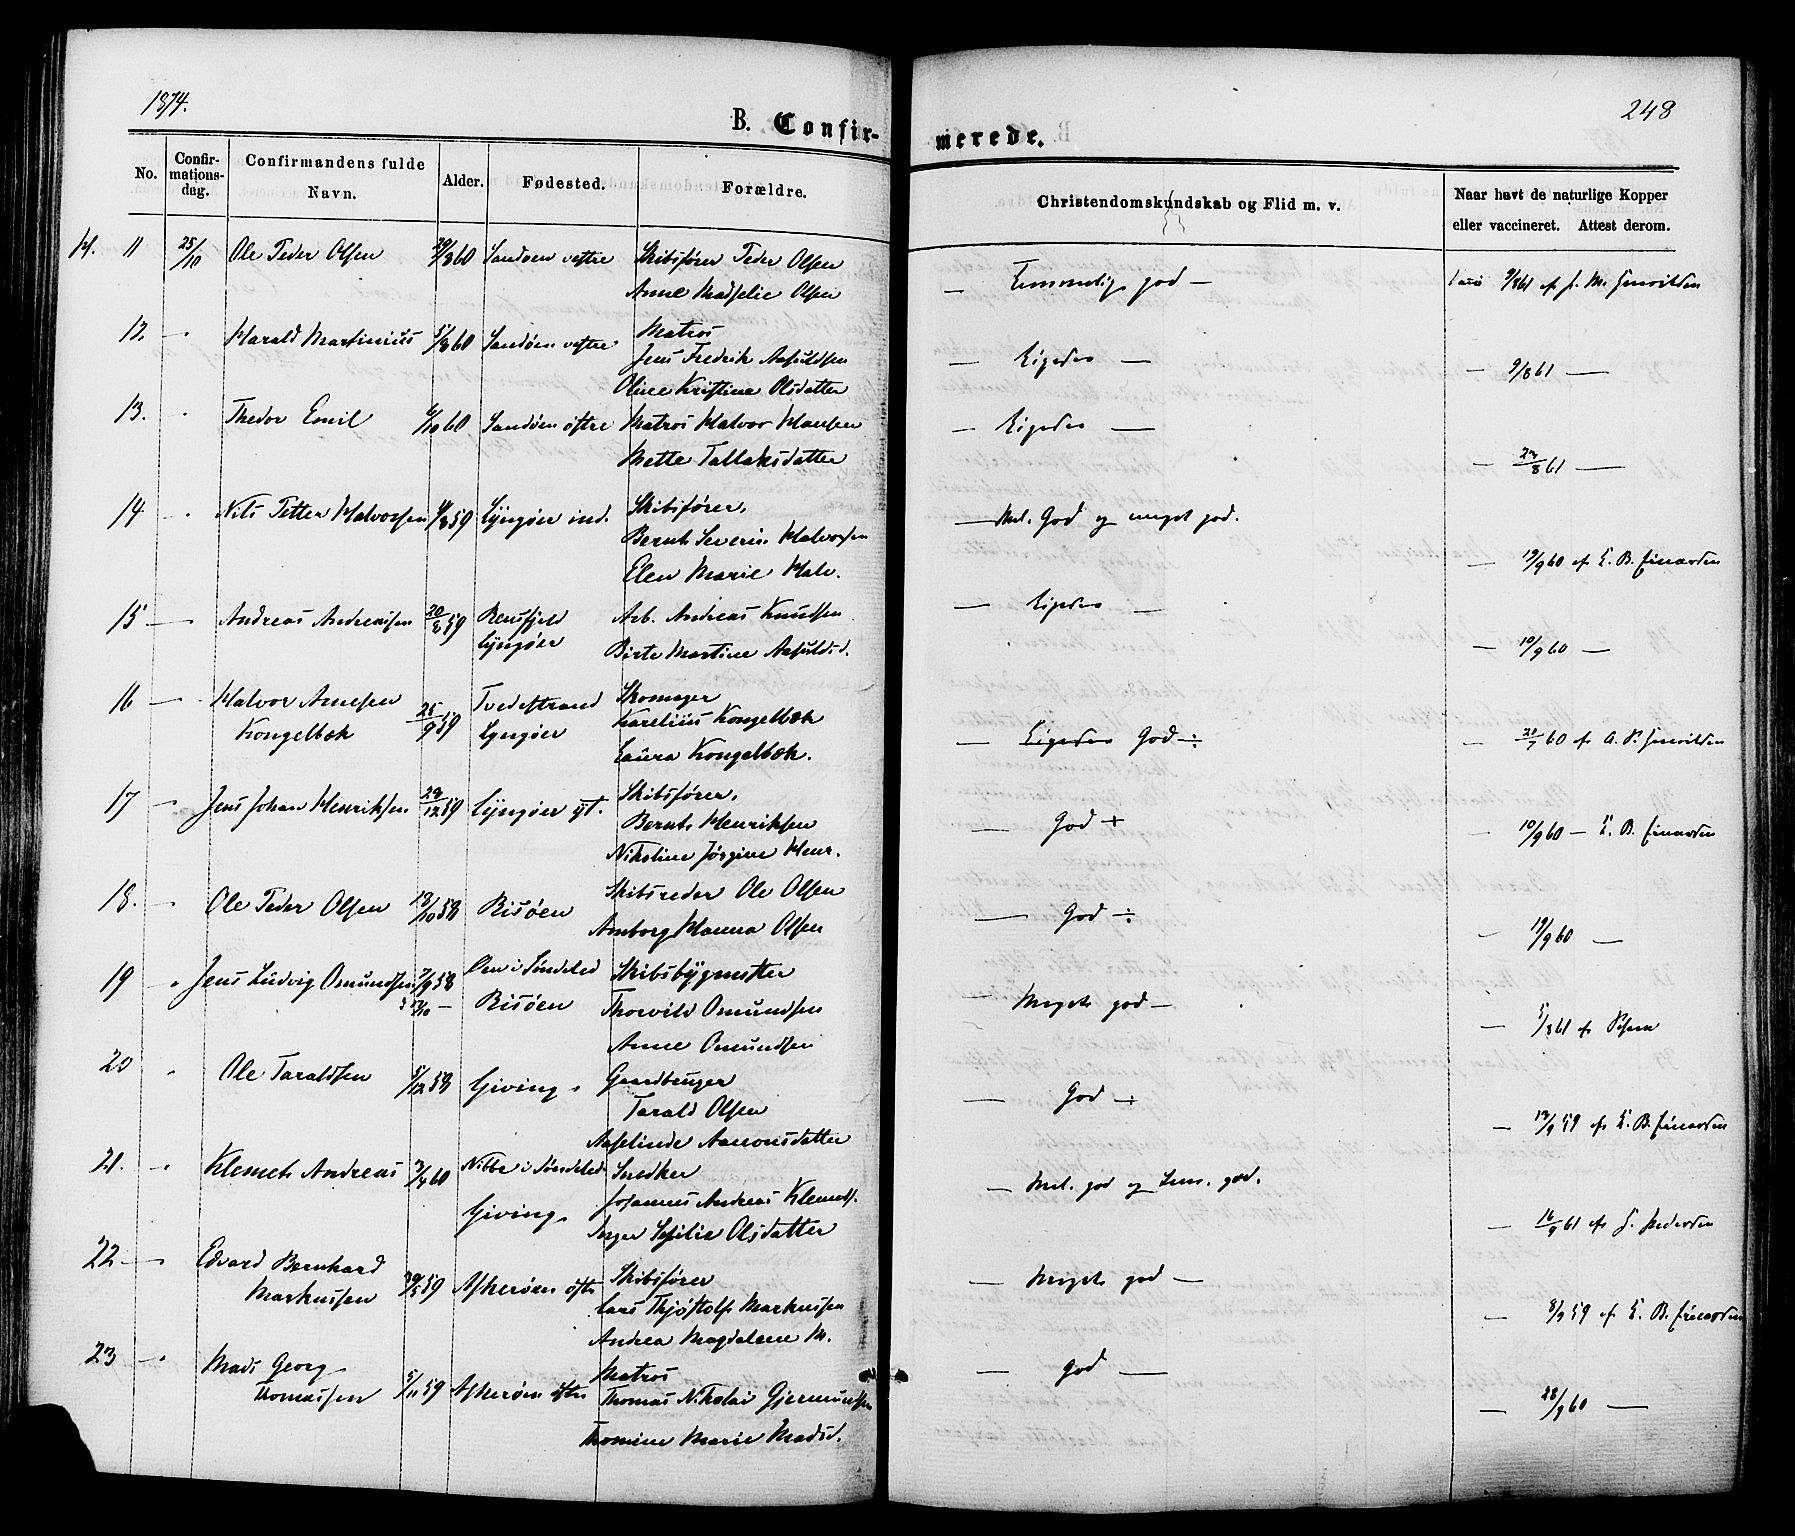 1874.
248
B. Confir-
merede.
No.
Confir-
mations-
dag.
Confirmandens fulde
Navn.
Alder.
Fødested.
Forældre.
Christendomskundskab og Flid m. v.
Naar havt de naturlige Kopper
eller vaccineret. Attest derom.
11 25/10 Ole Peder Olsen 60 Sandøen vestre Skibsfører Peder Olsen
Anne Olsen
Temmelig god — 9/8 61 af
12. " Harald Martinius 5/8 60 Sandøen vestre Matros
Jens Fredrik Aasuldsen
Oline Kristine Olsdatter
— Ligedes — — 9/8 61 —
13. " Thedor Emil 6/10 60 Sandøen østre Matros Halvor Hansen
Mette Tallaksdatter
— Ligedes — — 61 —
14 " Nils Petter Halvorsen 59 Lyngøer ind. Skibsfører,
Bernt Severin Halvorsen
Elen Marie Halv.
— Mel. God og meget god. 19/9 60 af E. B.
15 — " Andreas Andreassen 20/8 59 Lyngøer Arb. Andreas Knudsen
Birte Martine Aasuldsd.
— Ligedes — — 10/9 60 —
16 — " Halvor Arnesen
Kongelbæk 25/9 59 Tvedestrand
Lyngøer Skomager
Karelius Kongelbæk
Laura Kongelbæk.
— Ligedes God ÷ — 21/7 60 af A.
17 — " Jens Johan Henriksen 29/12 59 Lyngøer yt. Skibsfører,
Bernt Henriksen
Nikoline Jørgine Henr.
— God + — 10/9 60 — E. B.
18. — " Ole Peder Olsen 18/10 58 Risøen Skibsreder Ole Olsen
Hanna Olsen
— God ÷ — 19/9 60 —
19 " Jens Ludvig Omundsen 7/9 58 i Søndeled
Risøen Skibsbygmester
Thorvild Omundsen
Anne Omundsen
— Megets god — — 61 af
20 " Ole Taraldsen 5/12 58 Giving " Gaardbruger
Tarald Olsen
Aaselinde Aanonsdatter
— God ÷ — 59 af E. B.
21. — " Klemet Andreas 3/4 60 Nibbe i Søndeled
Giving " Snedker
Johannes Andreas Klemets.
Inger Olsdatter
— Mel. god og Tem. god. — 16/9 61 af
22 — " Edvard Bernhard
Markussen 30/5 59 Askerøen østr. Skibsfører
Lars Thjøstolf Markussen
Andrea Magdalene M.
— Megets god — — 8/9 59 af E. B.
23 — " Mads Georg
Thomassen 5/11 59 Askerøen østre Matros
Thomas Nikolai Gjermundsen
Thomine Marie Madsd.
— God — — 28/9 60 —